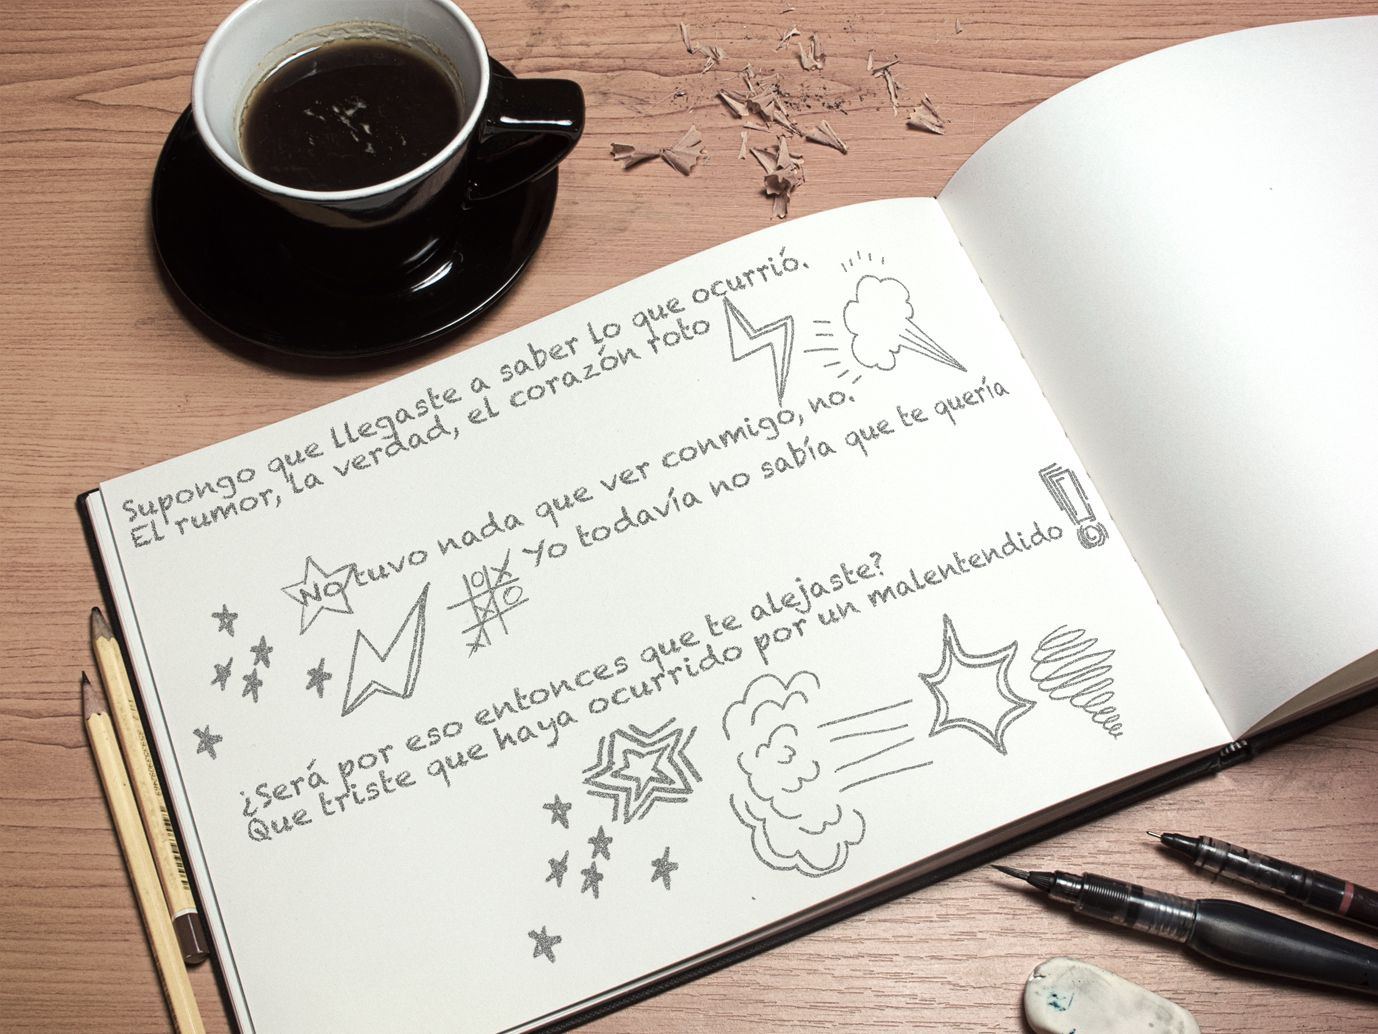 Supongo que llegaste a saber lo que ocurrió.
El rumor, la verdad, el corazón roto
No tuvo nada que ver conmigo, no.
Yo todavía no sabía que te quería
¿Será por eso entonces que te alejaste?
Que triste que haya ocurrido por un malentendido